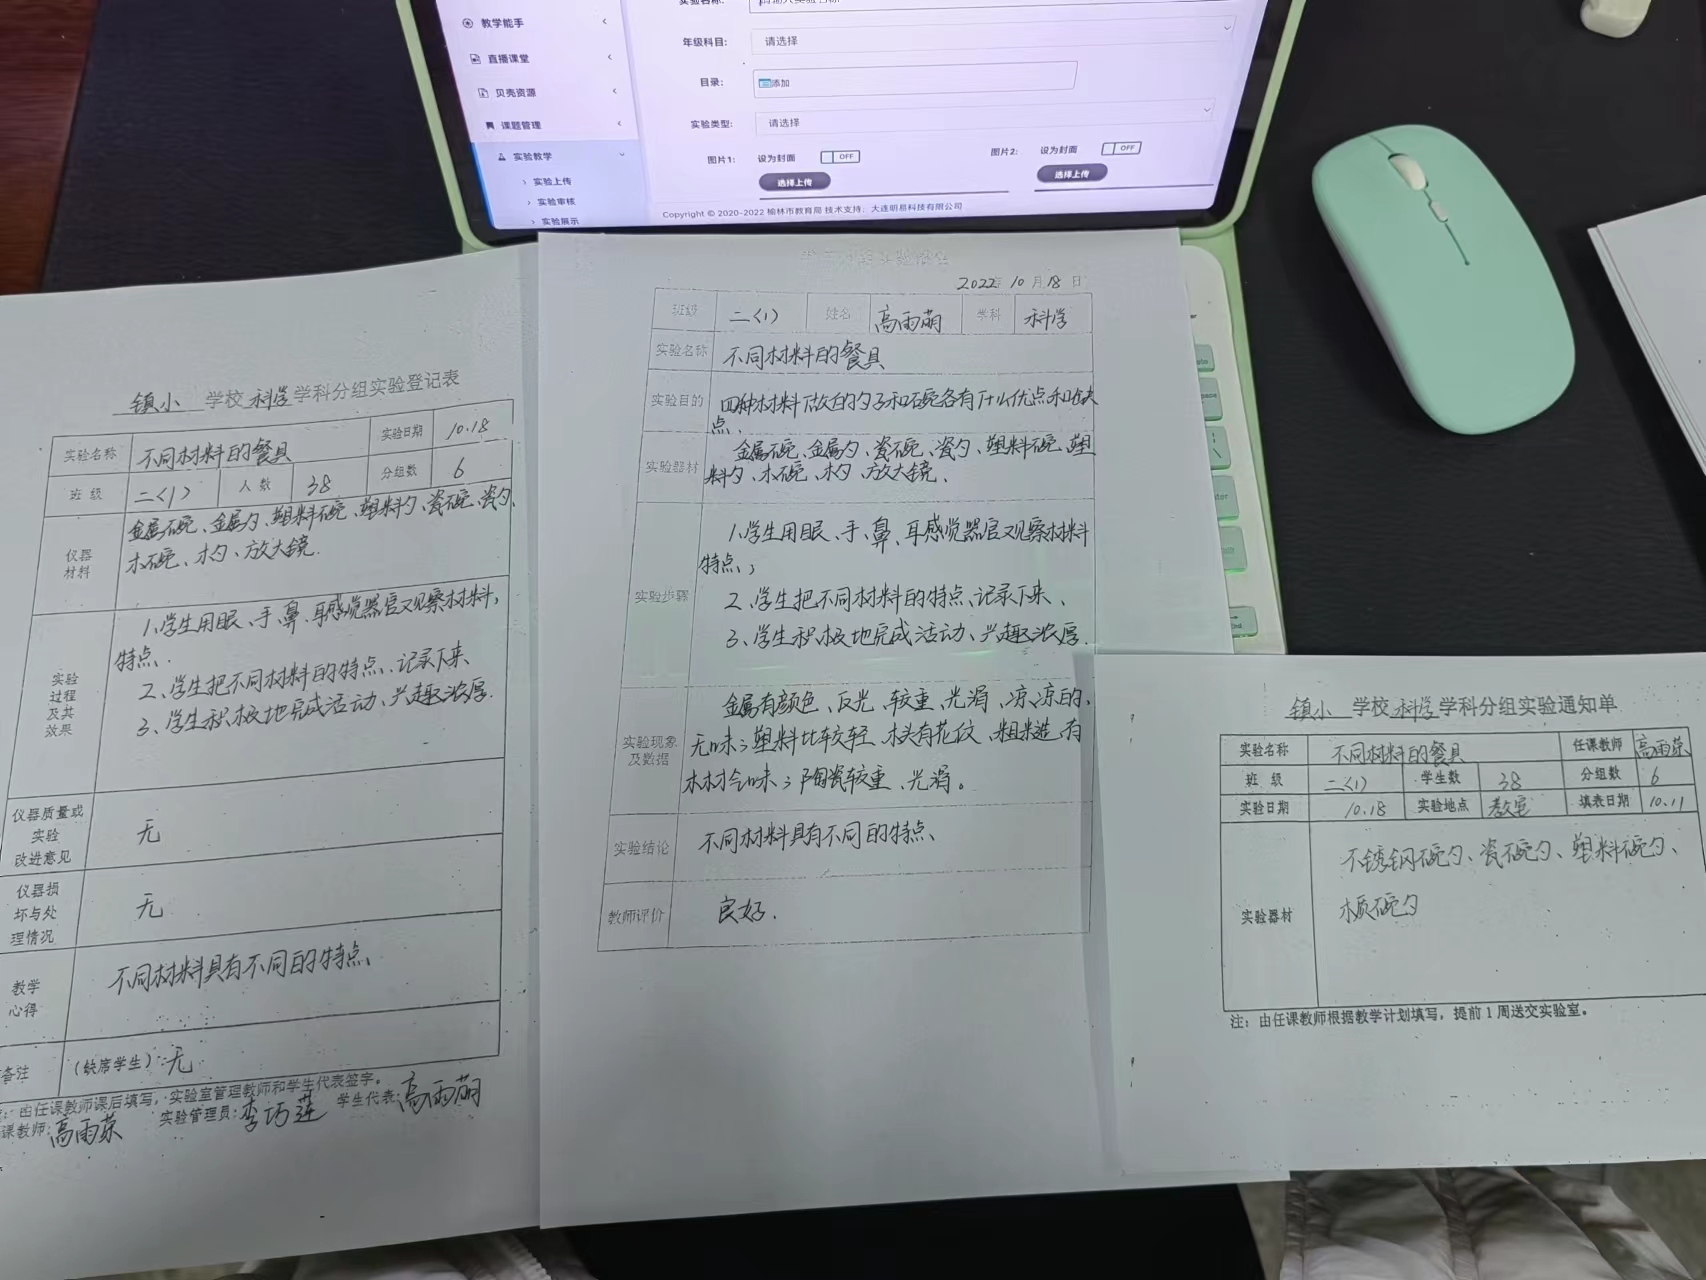 教学能手
直播课堂
贝壳资源
课题管理
实验教学
实验上传
实验审核
实验展示
年级科目: 请选择
目录: 添加
实验类型: 请选择
图片1: 设为封面 OFF
选择上传
图片2: 设为封面 OFF
选择上传
Copyright © 2020-2022 榆林市教育局 技术支持: 大连明易科技有限公司
镇小 学校 科学 学科分组实验登记表
实验名称 不同材料的餐具 实验日期 10.18
班级 二〈1〉 人数 38 分组数 6
仪器材料
金属碗、金属勺、塑料碗、塑料勺、瓷碗、瓷勺、
木碗、木勺、放大镜.
实验过程及其效果
1、学生用眼、手、鼻、耳感觉器官观察材料,
特点、.
2、学生把不同材料的特点、记录下来、
3、学生积极地完成活动、兴趣浓厚.
仪器质量或实验改进意见 无
仪器损坏与处理情况 无
教学心得 不同材料具有不同的特点、
备注 (缺席学生):无
由任课教师课后填写,实验室管理教师和学生代表签字。
课教师: 高雨荣 实验管理员: 李巧莲 学生代表: 高雨萌
2022年 10月 18日
班级 二〈1〉 姓名 高雨萌 学科 科学
实验名称 不同材料的餐具
实验目的 四种材料做的勺子和碗各有什么优点和缺
点.
实验器材 金属碗、金属勺、瓷碗、瓷勺、塑料碗、塑
料勺、木碗、木勺、放大镜、
实验步骤
1、学生用眼、手、鼻、耳感觉器官观察材料
特点、;
2、学生把不同材料的特点、记录下来、
3、学生积极地完成活动、兴趣浓厚.
实验现象及数据
金属有颜色、反光、较重、光滑、凉凉的、
无味;塑料比较轻、木头有花纹、粗糙、有
木材味;陶瓷较重、光滑。
实验结论 不同材料具有不同的特点、
教师评价 良好.
镇小 学校 科学 学科分组实验通知单
实验名称 不同材料的餐具 任课教师 高雨荣
班级 二〈1〉 学生数 38 分组数 6
实验日期 10.18 实验地点 教室 填表日期 10.11
实验器材
不锈钢碗勺、瓷碗勺、塑料碗勺、
木质碗勺
注: 由任课教师根据教学计划填写, 提前1周送交实验室。